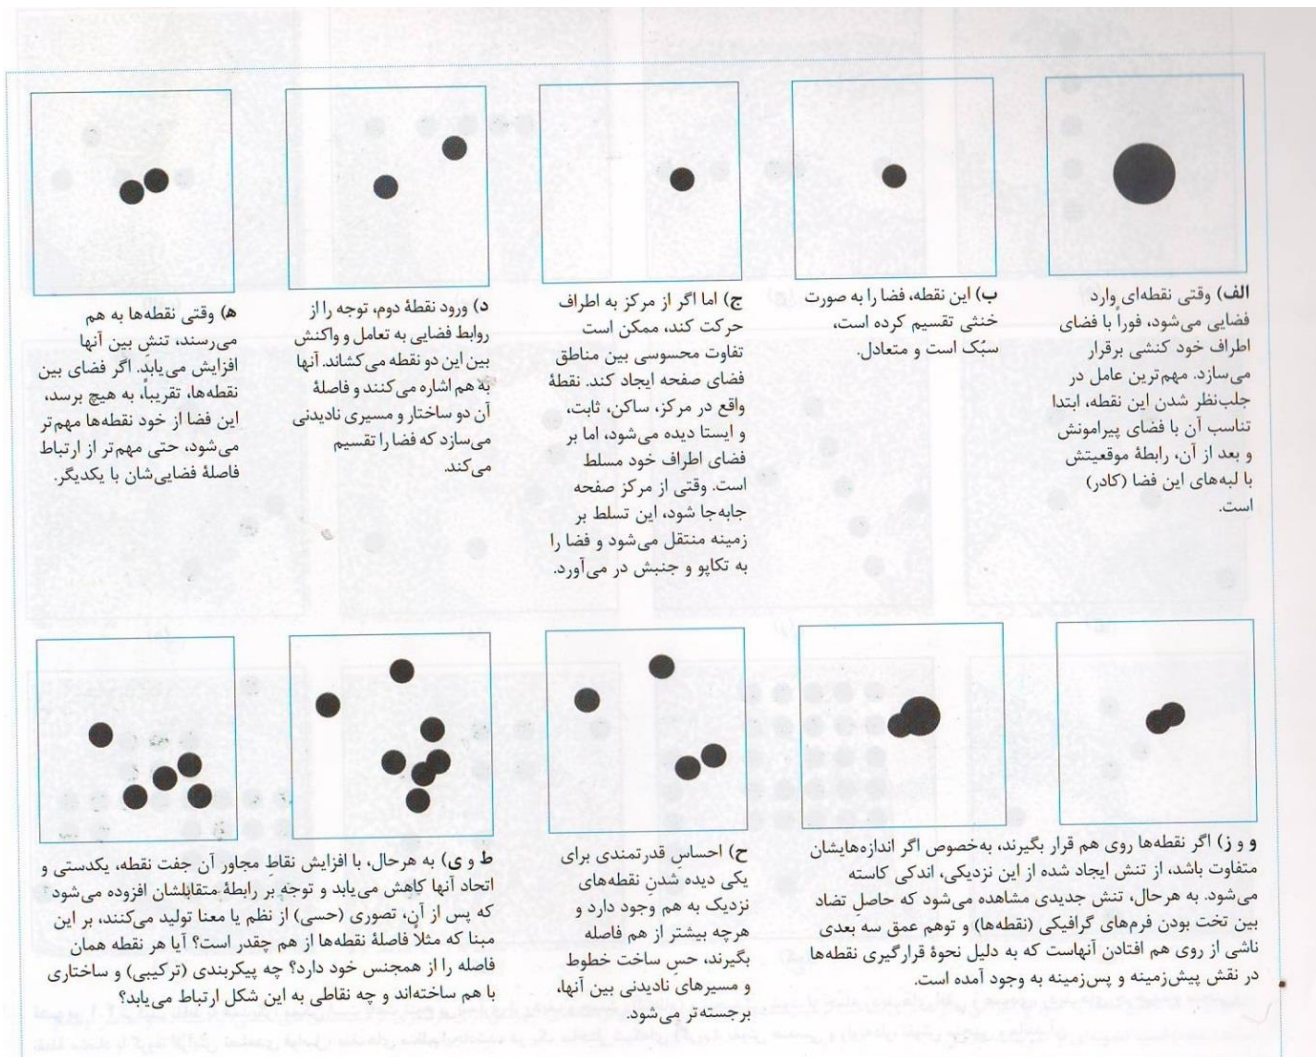 الف) وقتی نقطه‌ای وارد
فضایی می‌شود، فوراً با فضای
اطراف خود کنشی برقرار
می‌سازد. مهم‌ترین عامل در
جلب‌نظر شدن این نقطه، ابتدا
تناسب آن با فضای پیرامونش
و بعد از آن، رابطهٔ موقعیتش
با لبه‌های این فضا (کادر)
است.
ب) این نقطه، فضا را به صورت
خنثی تقسیم کرده است،
سبُک است و متعادل.
ج) اما اگر از مرکز به اطراف
حرکت کند، ممکن است
تفاوت محسوسی بین مناطق
فضای صفحه ایجاد کند. نقطهٔ
واقع در مرکز، ساکن، ثابت،
و ایستا دیده می‌شود، اما بر
فضای اطراف خود مسلط
است. وقتی از مرکز صفحه
جابه‌جا شود، این تسلط بر
زمینه منتقل می‌شود و فضا را
به تکاپو و جنبش در می‌آورد.
د) ورود نقطهٔ دوم، توجه را از
روابط فضایی به تعامل و واکنش
بین این دو نقطه می‌کشاند. آنها
به هم اشاره می‌کنند و فاصلهٔ
آن دو ساختار و مسیری نادیدنی
می‌سازد که فضا را تقسیم
می‌کند.
ه) وقتی نقطه‌ها به هم
می‌رسند، تنشِ بین آنها
افزایش می‌یابد. اگر فضای بین
نقطه‌ها، تقریباً، به هیچ برسد،
این فضا از خود نقطه‌ها مهم‌تر
می‌شود، حتی مهم‌تر از ارتباط
فاصلهٔ فضایی‌شان با یکدیگر.
و و ز) اگر نقطه‌ها روی هم قرار بگیرند، به‌خصوص اگر اندازه‌هایشان
متفاوت باشد، از تنش ایجاد شده از این نزدیکی، اندکی کاسته
می‌شود. به هرحال، تنش جدیدی مشاهده می‌شود که حاصلِ تضاد
بین تخت بودن فرم‌های گرافیکی (نقطه‌ها) و توهم عمق سه بعدی
ناشی از روی هم افتادن آنهاست که به دلیل نحوهٔ قرارگیری نقطه‌ها
در نقش پیش‌زمینه و پس‌زمینه به وجود آمده است.
ح) احساسِ قدرتمندی برای
یکی دیده شدنِ نقطه‌های
نزدیک به هم وجود دارد و
هرچه بیشتر از هم فاصله
بگیرند، حسِ ساخت خطوط
و مسیرهای نادیدنی بین آنها،
برجسته‌تر می‌شود.
ط و ی) به هرحال، با افزایش نقاطِ مجاور آن جفت نقطه، یکدستی و
اتحاد آنها کاهش می‌یابد و توجه بر رابطهٔ متقابلشان افزوده می‌شود
که پس از آن، تصوری (حسی) از نظم یا معنا تولید می‌کنند، بر این
مبنا که مثلاً فاصلهٔ نقطه‌ها از هم چقدر است؟ آیا هر نقطه همان
فاصله را از همجنس خود دارد؟ چه پیکربندی (ترکیبی) و ساختاری
با هم ساخته‌اند و چه نقاطی به این شکل ارتباط می‌یابد؟